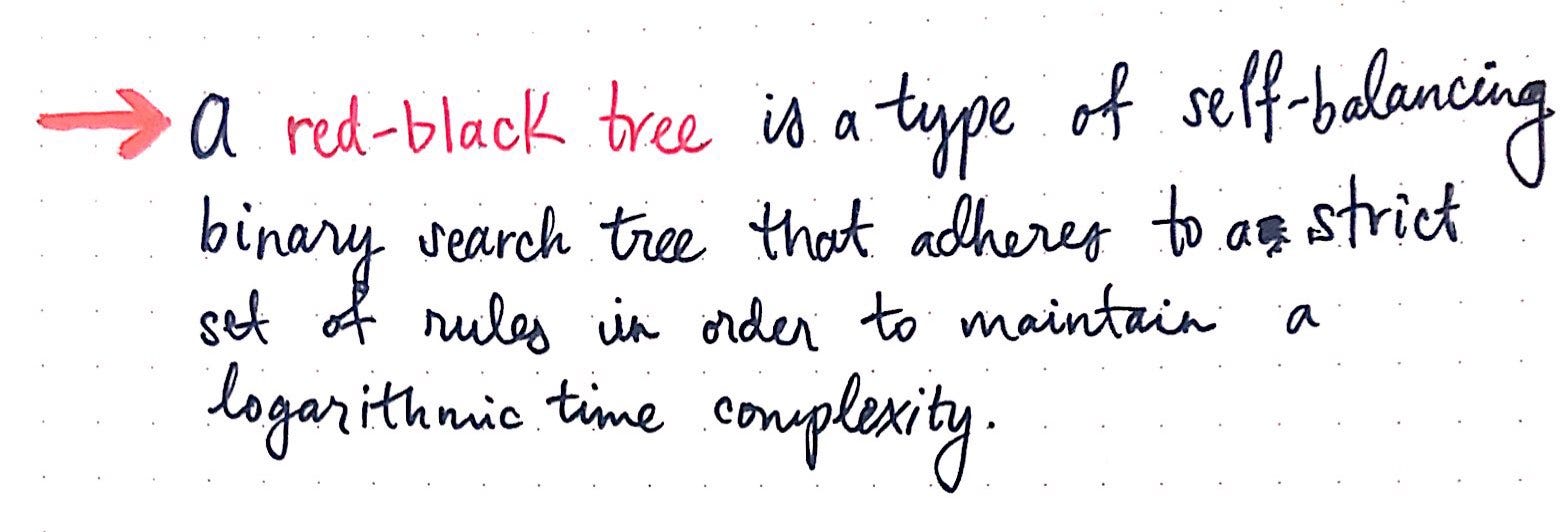 → a red-black tree is a type of self-balancing
binary search tree that adheres to a strict
set of rules in order to maintain a
logarithmic time complexity.